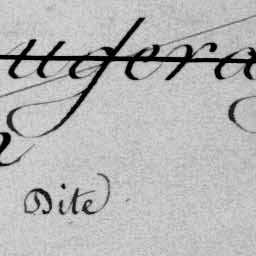 ugera
Dite